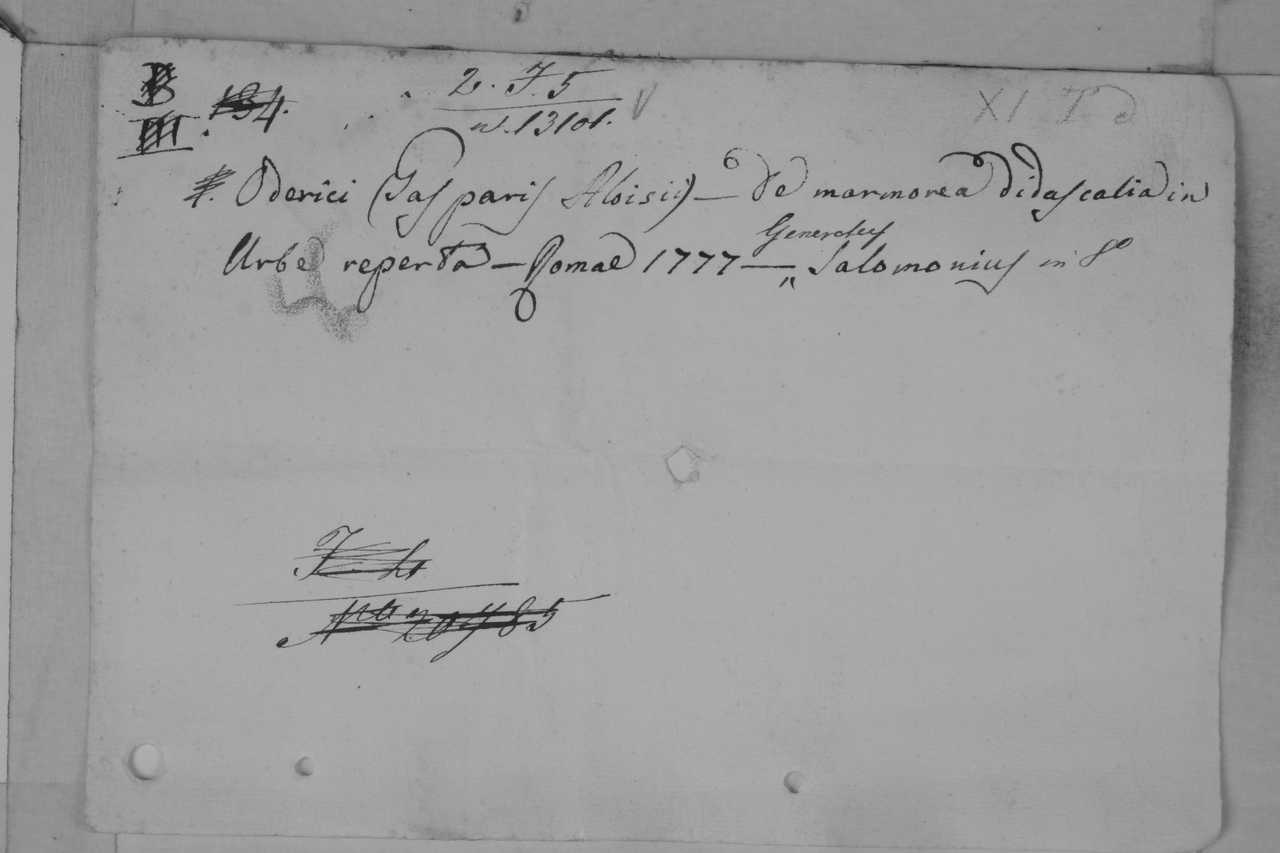 B 134. 2. F. 5 V XI I d
III. n. 13101.
#. Oderici (Gasparis Aloisii) — De marmorea didascalia in
Generosus
Urbe reperta — Romae 1777 — „ Salomonius in 8º
F. h
Nro 20785